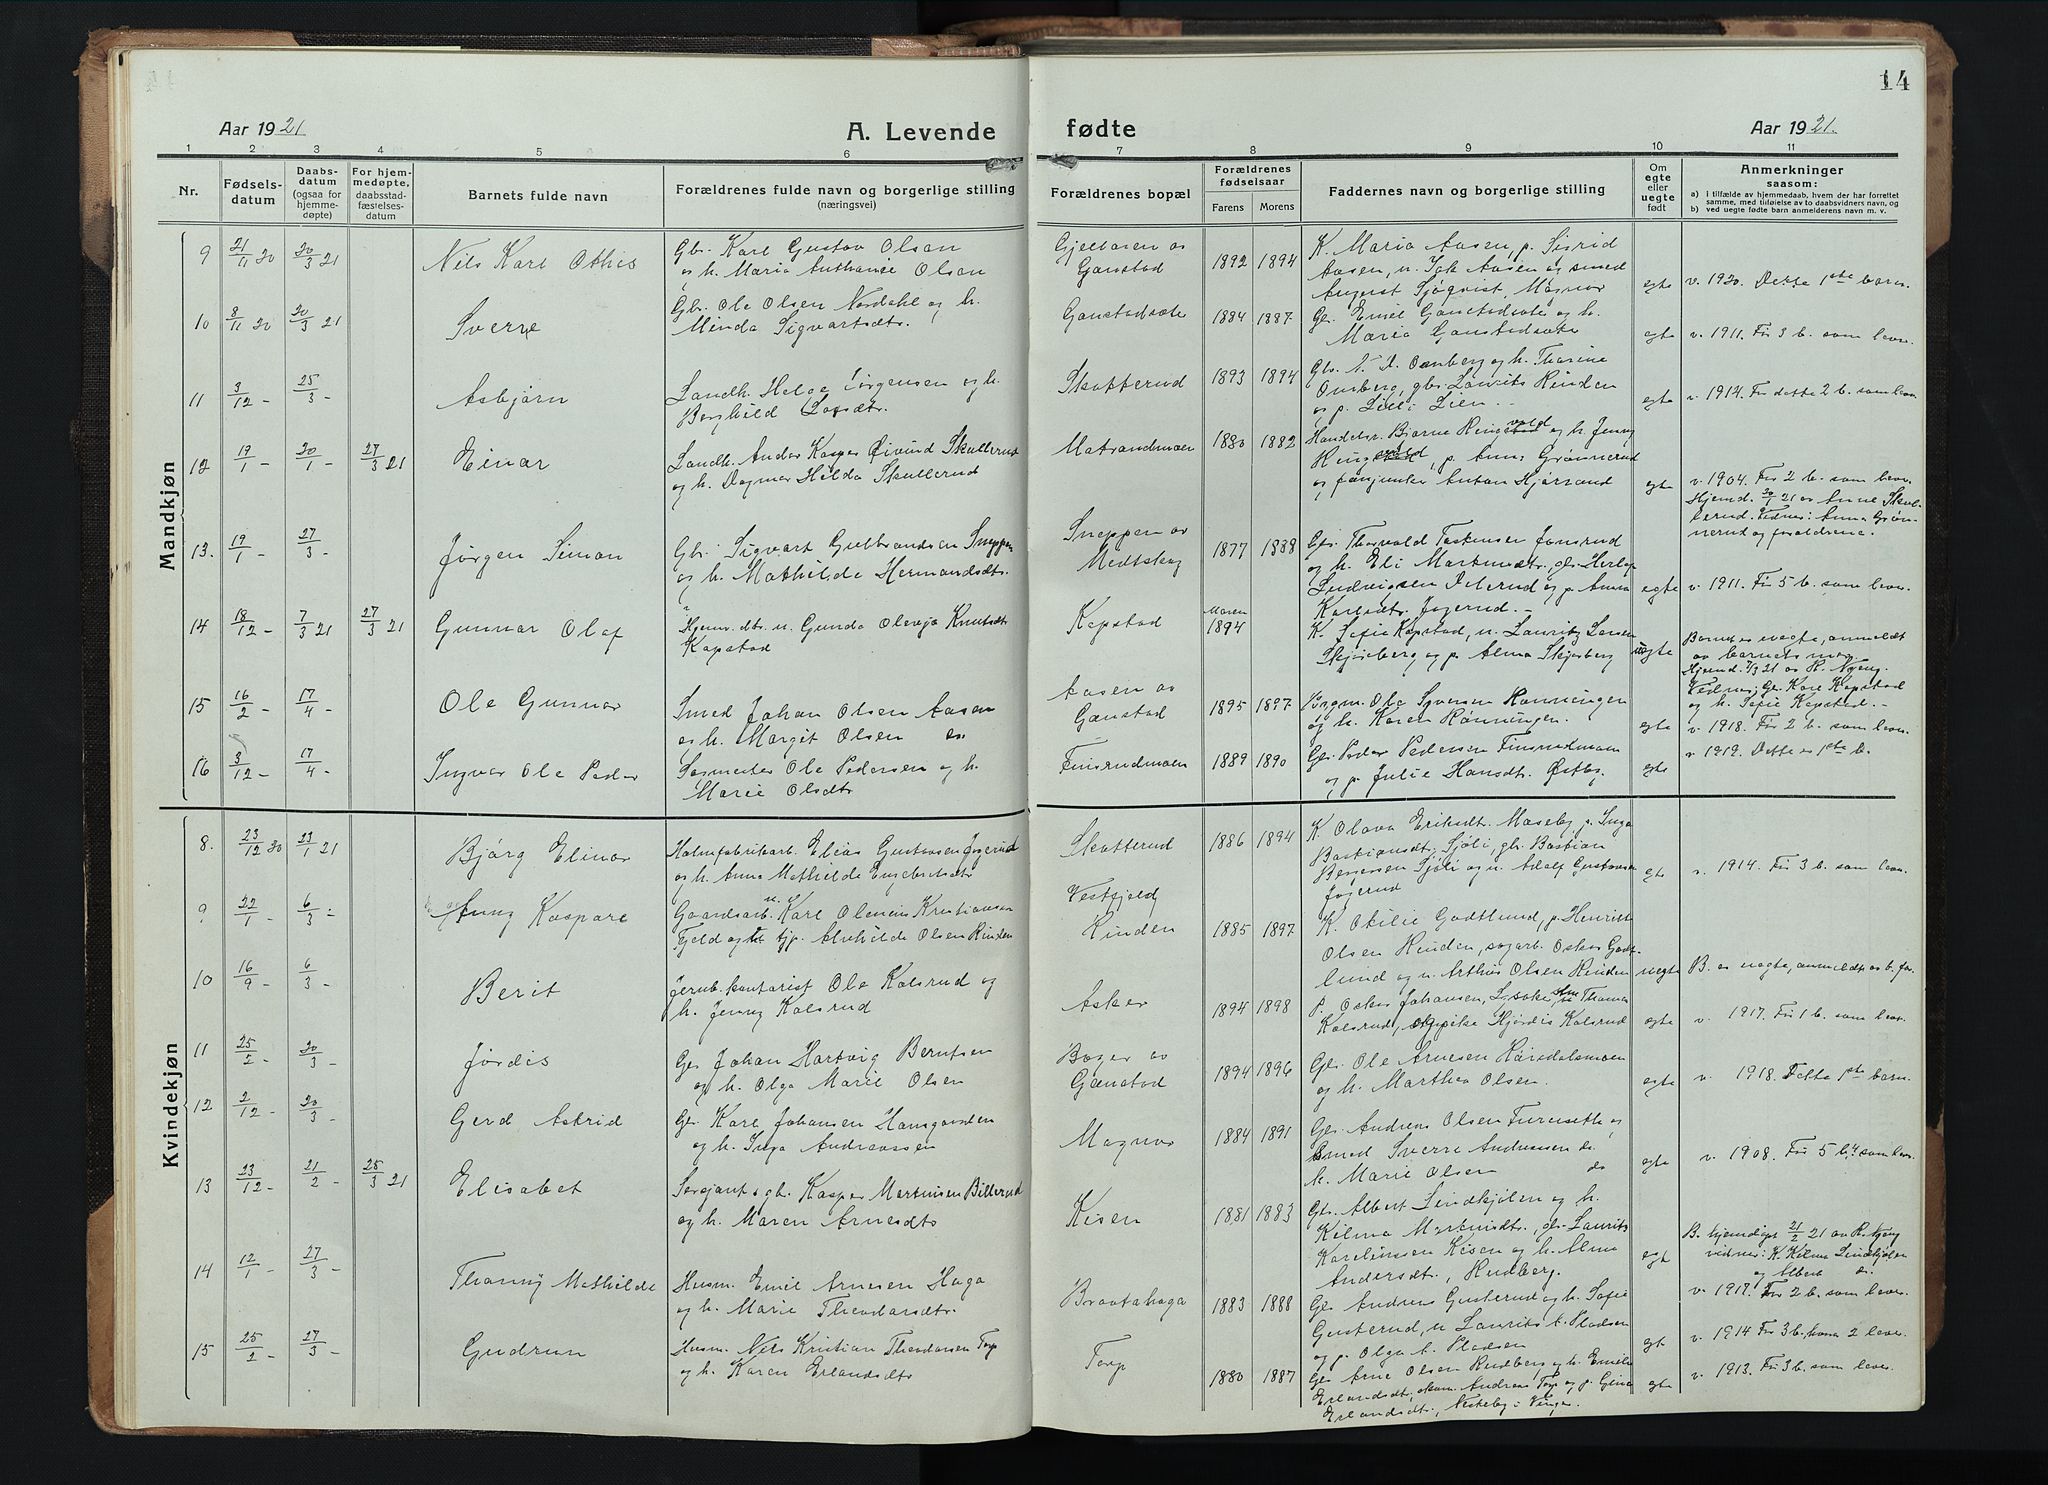 14
Aar 1921
A. Levende fødte
Aar 1921.
1 2 3 4 5 6 7 8 9 10 11
Nr.
Fødsels-
datum
Daabs-
datum
(ogsaa for
hjemme-
døpte)
For hjem-
medøpte,
daabsstad-
fæstelses-
datum
Barnets fulde navn
Forældrenes fulde navn og borgerlige stilling
(næringsvei)
Forældrenes bopæl
Forældrenes
fødselsaar
Farens Morens
Faddernes navn og borgerlige stilling
Om
egte
eller
uegte
født
Anmerkninger
saasom:
a) i tilfælde av hjemmedaab, hvem der har forrettet
samme, med tilføielse av to daabsvidners navn, og
b) ved uegte fødte barn anmelderens navn m. v.
Mandkjøn
9 21/11 20 20/3 21 Nils Karl Othis
Gbr. Karl Gustav Olsen
og h. Maria Anthonie Olsen
Gjelbasen av
Ganstad
1892 1894
K. Maria Aasen, p. Sigrid
Aasen, u. Aasen og smed
August Sjøqvist, Magnor
egte
v. 1920. Dette 1ste barn.
10 8/11 20 20/3 21 Sverre
Gbr. Ole Olsen Nordahl og h.
Minda Sigvartsdtr.
Ganstadsæte
1884 1887
Gbr. Emil Ganstadsæte og h.
Maria Ganstadsæte
egte
v. 1911. Før 3 b. som lever.
11 3/12 - 25/3 - Asbjørn
Landh. Helge Jørgensen og h.
Borghild
Skotterud
1893 1894
og h. Thorine
gbr. Laurits Rinden
og p. Lien. -
egte
v. 1914. Før dette 2 b. som lever
12 19/1 - 20/1 - 27/3 21 Einar
Landh. Ander Kasper Øivind Skullerud
og h. Dagmar Hilda Skullerud
Matrandmoen
1880 1882
Handelsr. Bjarne Ringsvold og h. Jenny
Ringsvold, p. Anna Grønnerud
og Anton
egte
v. 1904. Før 2 b. som lever.
Hjemd. 20/1 21 av Anne Skul-
lerud. Vidner: Anna Grøn-
nerud og forældrene.
13. 19/1 - 27/3 - Jørgen Simon
Gbr. Sigvart Gulbrandsen Sneppen
og h. Mathilde Hermandsdtr.
Sneppen av
Medtskog
1877 1888
Gbr. Thorvald Jonsrud
og h. Eli Martinsdtr.,
Ludvigsen og p. Anna
Karlsdtr. Jogerud. -
egte
v. 1911. Før 5 b. som lever.
14 18/12 - 7/3 21 27/3 21 Gunnar Olaf
Hjemv. dtr. u. Gunda Olevja Knutsdtr.
Kapstad
Kapstad
Moren
1894
K. Sofie Kapstad, u. Lauritz Larsen
Skjøsberg og p. Alma Skjøsberg
uegte
Barnet er uegte, anmeldt
av barnets mor
Hjemd. 7/3 21 av R. Nyeng.
Vidner: Gbr. Kare Kapstad
og h. Sofie Kapstad. -
15 16/2 - 17/4 - Ole Gunnar
Smed Johan Olsen Aasen
og h. Margit Olsen
Aasen av
Ganstad
1895 1897
Ole Syversen Rønningen
og h. Karen Rønningen.
egte
v. 1918. Før 2 b. som lever.
16 3/12 - 17/4 - Ingvar Ole Peder
Sagmester Ole Pedersen og h.
Marie Olsdtr.
Finsrudmoen
1889 1890
Gbr. Peder Pedersen Finsrudmoen
og p. Julie Hansdtr. Østby.
egte
v. 1912. Dette er 1ste b.
Kvindekjøn
8. 23/12 20 23/1 21 Bjørg Elinor
Halmfabrikarb. Elias Gustavsen Jogerud
og h. Anna Mathilde Engebretsdtr.
Skotterud
1886 1894
K. Olava Eriksdtr. Moseby, p. Inga
Bastiansdtr. Sjøli, gbr. Bastian
Sjøli og u. Adolf Gustavsen
Jogerud
egte
v. 1914. Før 3 b. som lever.
9 22/1 - 6/3 - Anny Kaspare
Gaardsarb. Karl Olenius Kristiansen
og tjp. Alvhilde Olsen Rinden
Vestfjeld
Rinden
1885 1897
K. Otilie Godtlund, p. Henriette
Olsen Rinden, sagarb. Oskar Godt-
lund og u. Arthur Olsen Rinden
uegte
B. er uegte, anmeldt av b. far.
10 16/9 - 6/3 - Berit
Jernb. kontorist Ole Kolsrud og
h. Jenny Kolsrud
Asker
1894 1898
P. Oskar Johansen, Thomas
Kolsrud, og pike Hjørdis Kolsrud
egte
v. 1917. Før 1 b. som lever.
11 25/2 - 20/3 - Jørdis
Gbr. Johan Hartvig Berntsen
og h. Olga Marie Olsen
Boger av
Ganstad
1894 1896
Gbr. Ole Arnesen
og h. Marthea Olsen.
egte
v. 1918. Dette 1ste barn.
12 2/12 - 20/3 - Gerd Astrid
Gbr. Karl Johansen
og h. Inga Andreassen
Magnor
1884 1891
Gbr. Andreas Olsen Furuseth og
smed Sverre Andreassen do.
h. Marie Olsen do
egte
v. 1908. Før 5 b. som lever.
13 23/12 - 21/2 - 25/3 21 Elisabet
Sersjant og gbr. Kasper Martinsen Billerud
og h. Maren Arnesdtr.
Kisen
1881 1883
Gbr. Albert Lindkjølen og h.
Kilma Martinsdtr., gbr. Laurits
Karelinssen Kisen og h. Alma
Andersdtr., Rudberg.
egte
B. hjemdøpt 21/2 21 av R. Nyeng
vidner: K. Kilma Lindkjølen
og Albert do.
v. 1917. Før 2 b. som lever.
14 12/1 - 27/3 - Thanny Mathilde
Husm. Emil Arnesen Haga
og h. Marie Theodorsdtr.
Braatahaga
1883 1888
Gbr. Andreas Gusterud og h. Sofie
Gusterud, u. Laurits t. Pladsen
og p. Olga t. Pladsen
egte
v. 1914 Før 3 b. hvorav 2 lever.
15 25/2 - 27/3 - Gudrun
Husm. Nils Kristian Theodorsen Torp
og h. Karen Erlandsdtr.
Torp
1880 1887
Gbr. Arne Olsen Rudberg og h. Emilie
Erlandsdtr., Andreas Torp og p. Gina
Erlandsdtr., Neskeby i Vinger.
egte
v. 1913. Før 3 b. som lever.